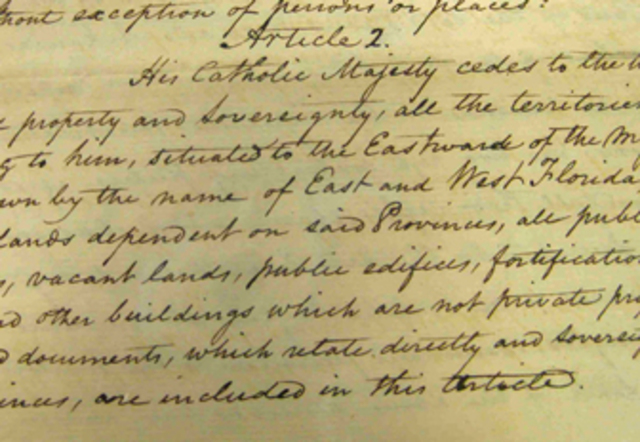 without exception of persons or places.
Article 2.
His Catholic Majesty cedes to the
property and Sovereignty, all the territories
to him, situated to the Eastward of the
by the name of East and West Florida
lands dependent on said Provinces, all
vacant lands, public edifices, fortifications
other buildings which are not private
documents, which relate directly and
are included in this Article.